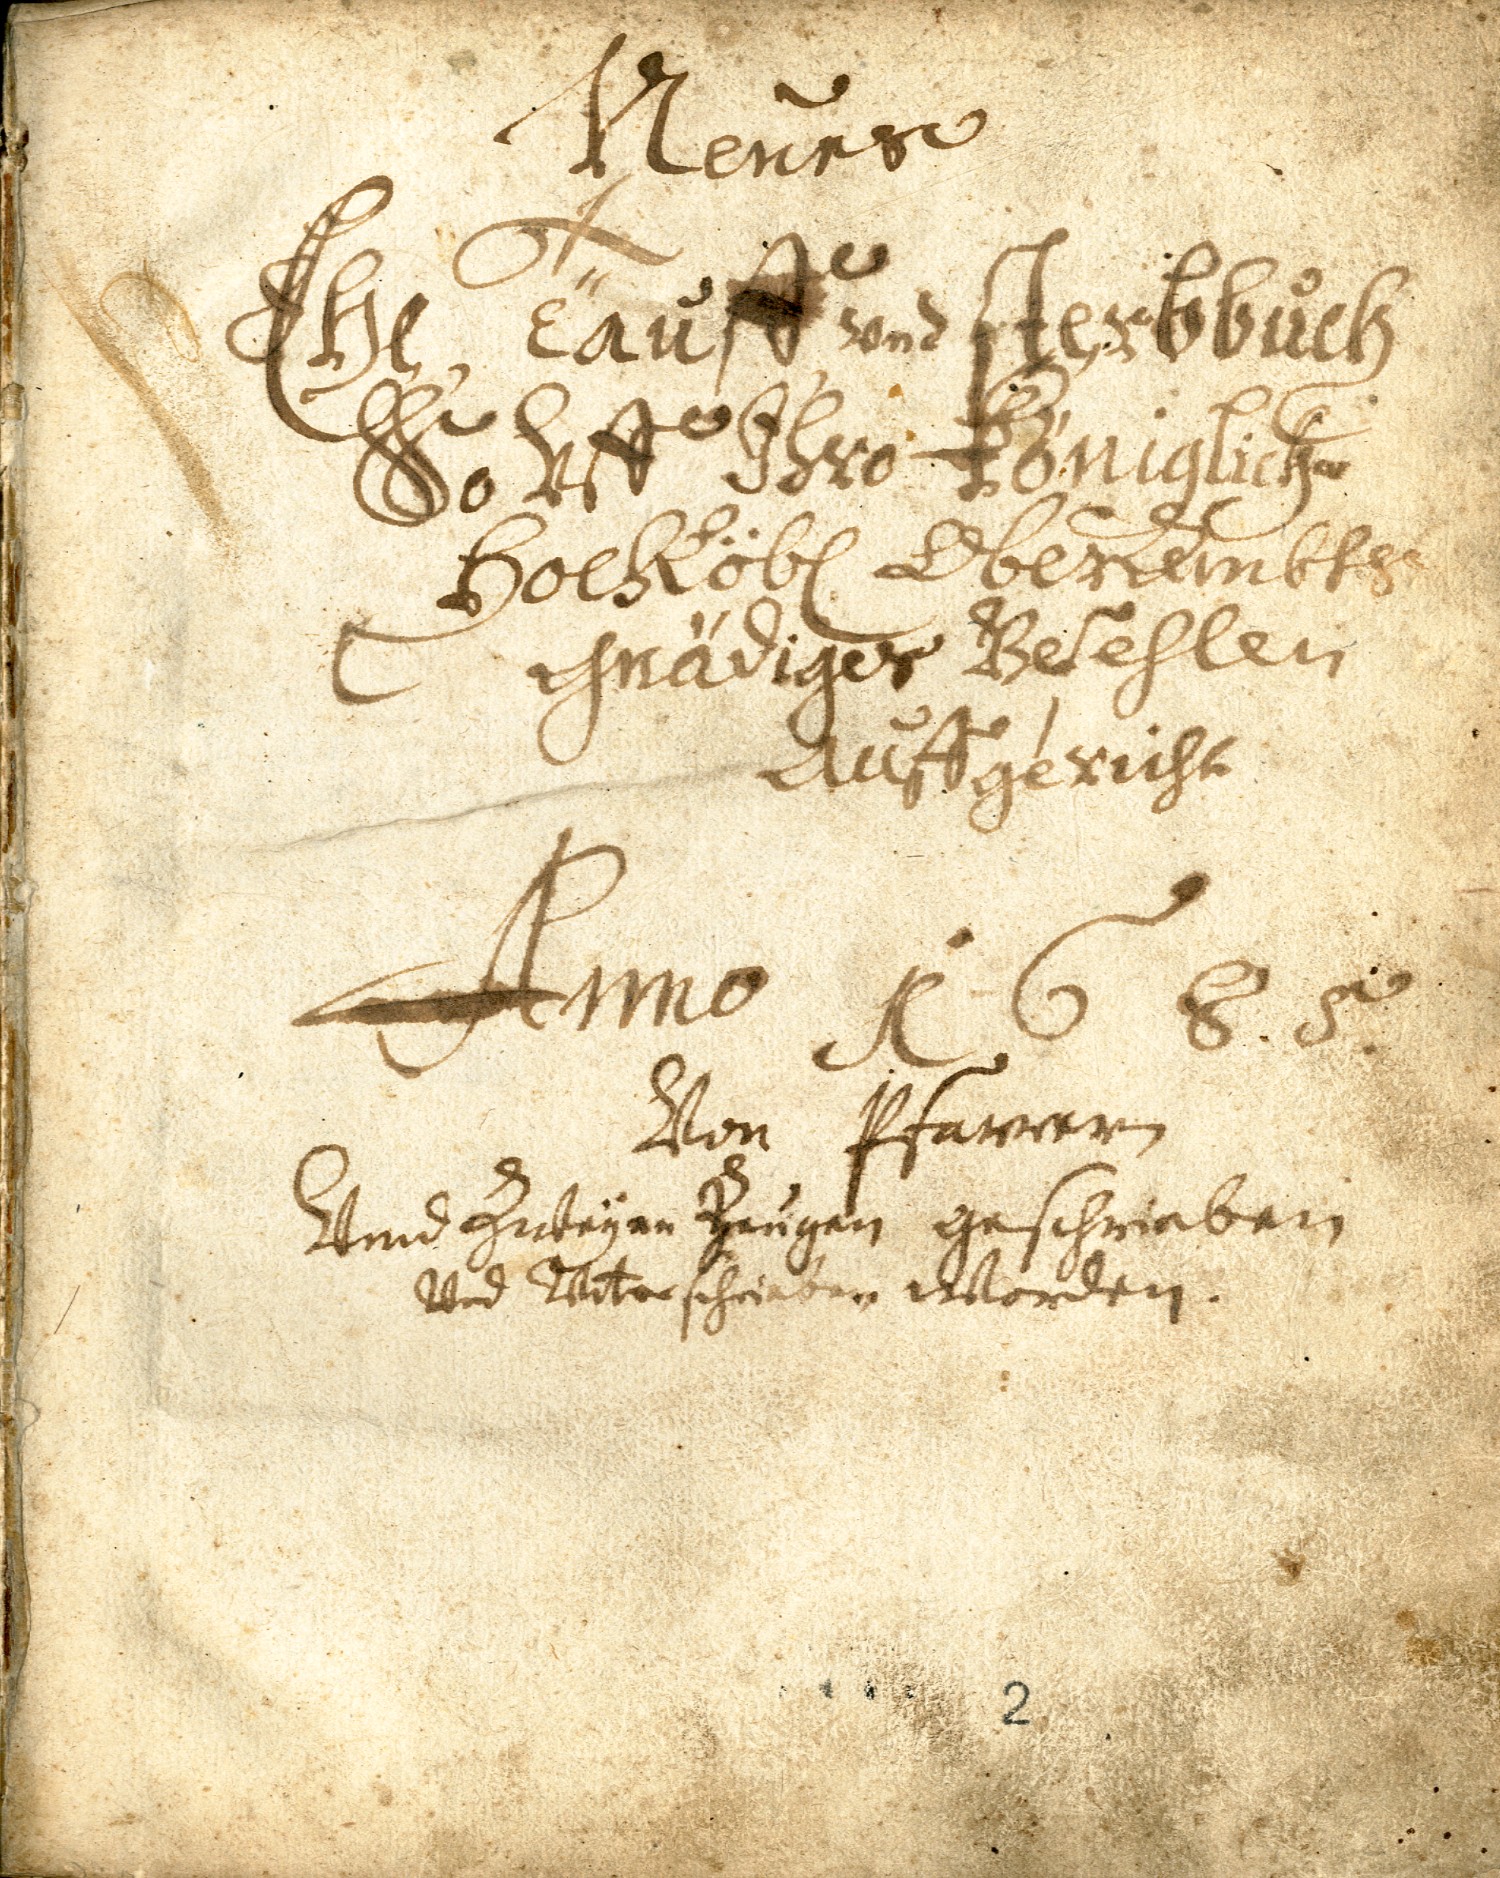 Neues
Ehe, Täuff und Sterbbuch
So Uff Ihro Königlich
Hochlöbl Oberambts
gnädiges Befehlen
Auffgericht
Anno 1 6 8. 5.
Von Pfarrern
Vnnd Zweÿen Zeugen geschrieben
Vnd Vnterschrieben Worden.
2